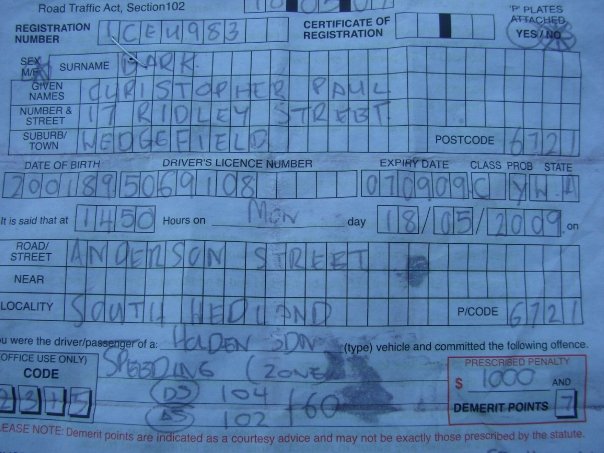 Road Traffic Act, Section102
'P' PLATES ATTACHED
REGISTRATION NUMBER 1CEU983 CERTIFICATE OF REGISTRATION YES / NO
SEX M/F SURNAME BARK
GIVEN NAMES CHRISTOPHER PAUL
NUMBER & STREET 17 RIDLEY STREET
SUBURB/TOWN HEDGEFIELD POSTCODE 6721
DATE OF BIRTH DRIVER'S LICENCE NUMBER EXPIRY DATE CLASS PROB STATE
200189 5069108 070909 C Y W.A
It is said that at 1450 Hours on MON day 18/05/2009 on
ROAD/STREET ANDERSON STREET
NEAR
LOCALITY SOUTH HEDLAND P/CODE 6721
ou were the driver/passenger of a: HOLDEN SDN (type) vehicle and committed the following offence.
OFFICE USE ONLY) SPEEDING (ZONE PRESCRIBED PENALTY
CODE DS 104 60 $ 1000 AND
2315 AS 102 DEMERIT POINTS 7
LEASE NOTE: Demerit points are indicated as a courtesy advice and may not be exactly those prescribed by the statute.